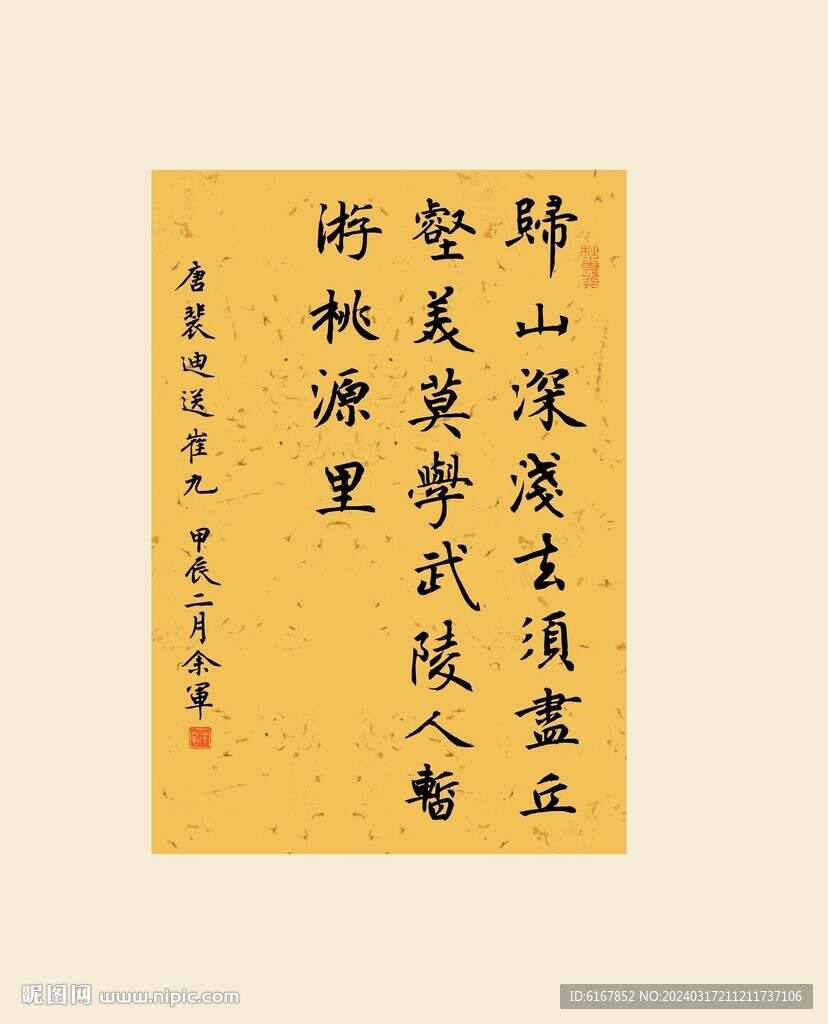 歸山深淺去須盡丘
壑美莫學武陵人暫
游桃源里
唐裴迪送崔九 甲辰二月余軍
昵图网 www.nipic.com
ID:6167852 NO:20240317211211737106